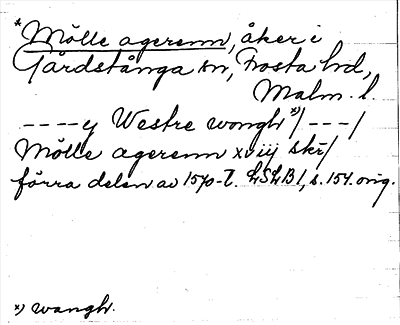 * Mölle agerenn, åker i
Gårdstånga sn, Frosta hd,
Malm. l.
----y Westre wongh *)/ ---/
Mölle agerenn xviij skr/
förra delen av 1570-t. LSLB 1, s. 154. orig.
*) wangh.